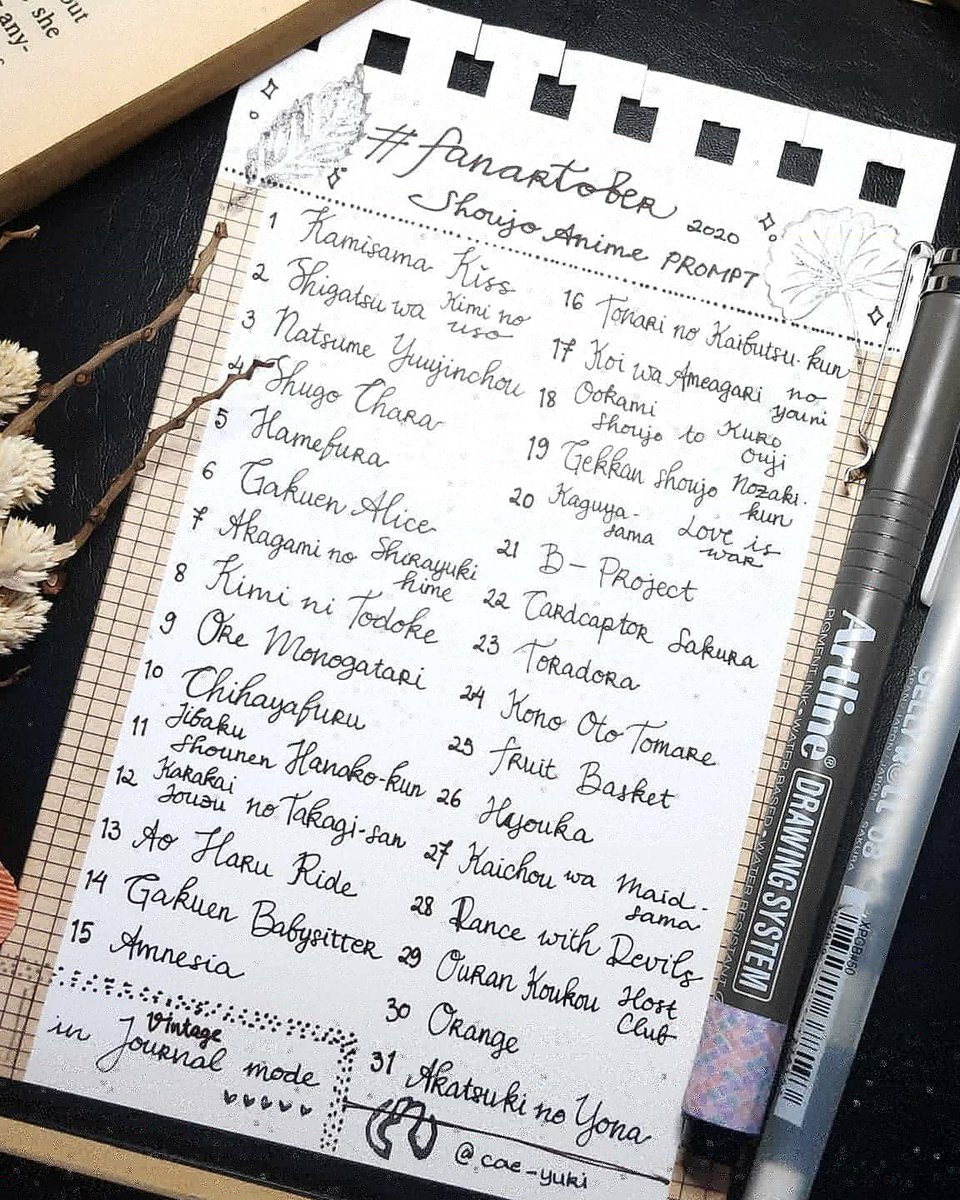 out
she
any-
#fanartober 2020
Shoujo Anime PROMPT
1 Kamisama Kiss
2 Shigatsu wa Kimi no uso
3 Natsume Yuujinchou
4 Shugo Chara
5 Hamefura
6 Gakuen Alice
7 Akagami no Shirayuki hime
8 Kimi ni Todoke
9 Ore Monogatari
10 Chihayafuru
11 Jibaku Shounen Hanako-kun
12 Karakai Jouzu no Takagi-san
13 Ao Haru Ride
14 Gakuen Babysitter
15 Amnesia
16 Tonari no Kaibutsu-kun
17 Koi wa Ameagari no youni
18 Ookami Shoujo to Kuro Ouji
19 Gekkan Shoujo Nozaki-kun
20 Kaguya-sama Love is war
21 B-Project
22 Cardcaptor Sakura
23 Toradora
24 Kono Oto Tomare
25 Fruit Basket
26 Hyouka
27 Kaichou wa Maid-sama
28 Dance with Devils
29 Ouran Koukou Host Club
30 Orange
31 Akatsuki no Yona
in Vintage Journal mode
@cae_yuki
Artline® DRAWING SYSTEM
PIGMENT INK • WATER BASED • WATER RESISTANT
GELLY ROLL 08
SAKURA
XPGB#50